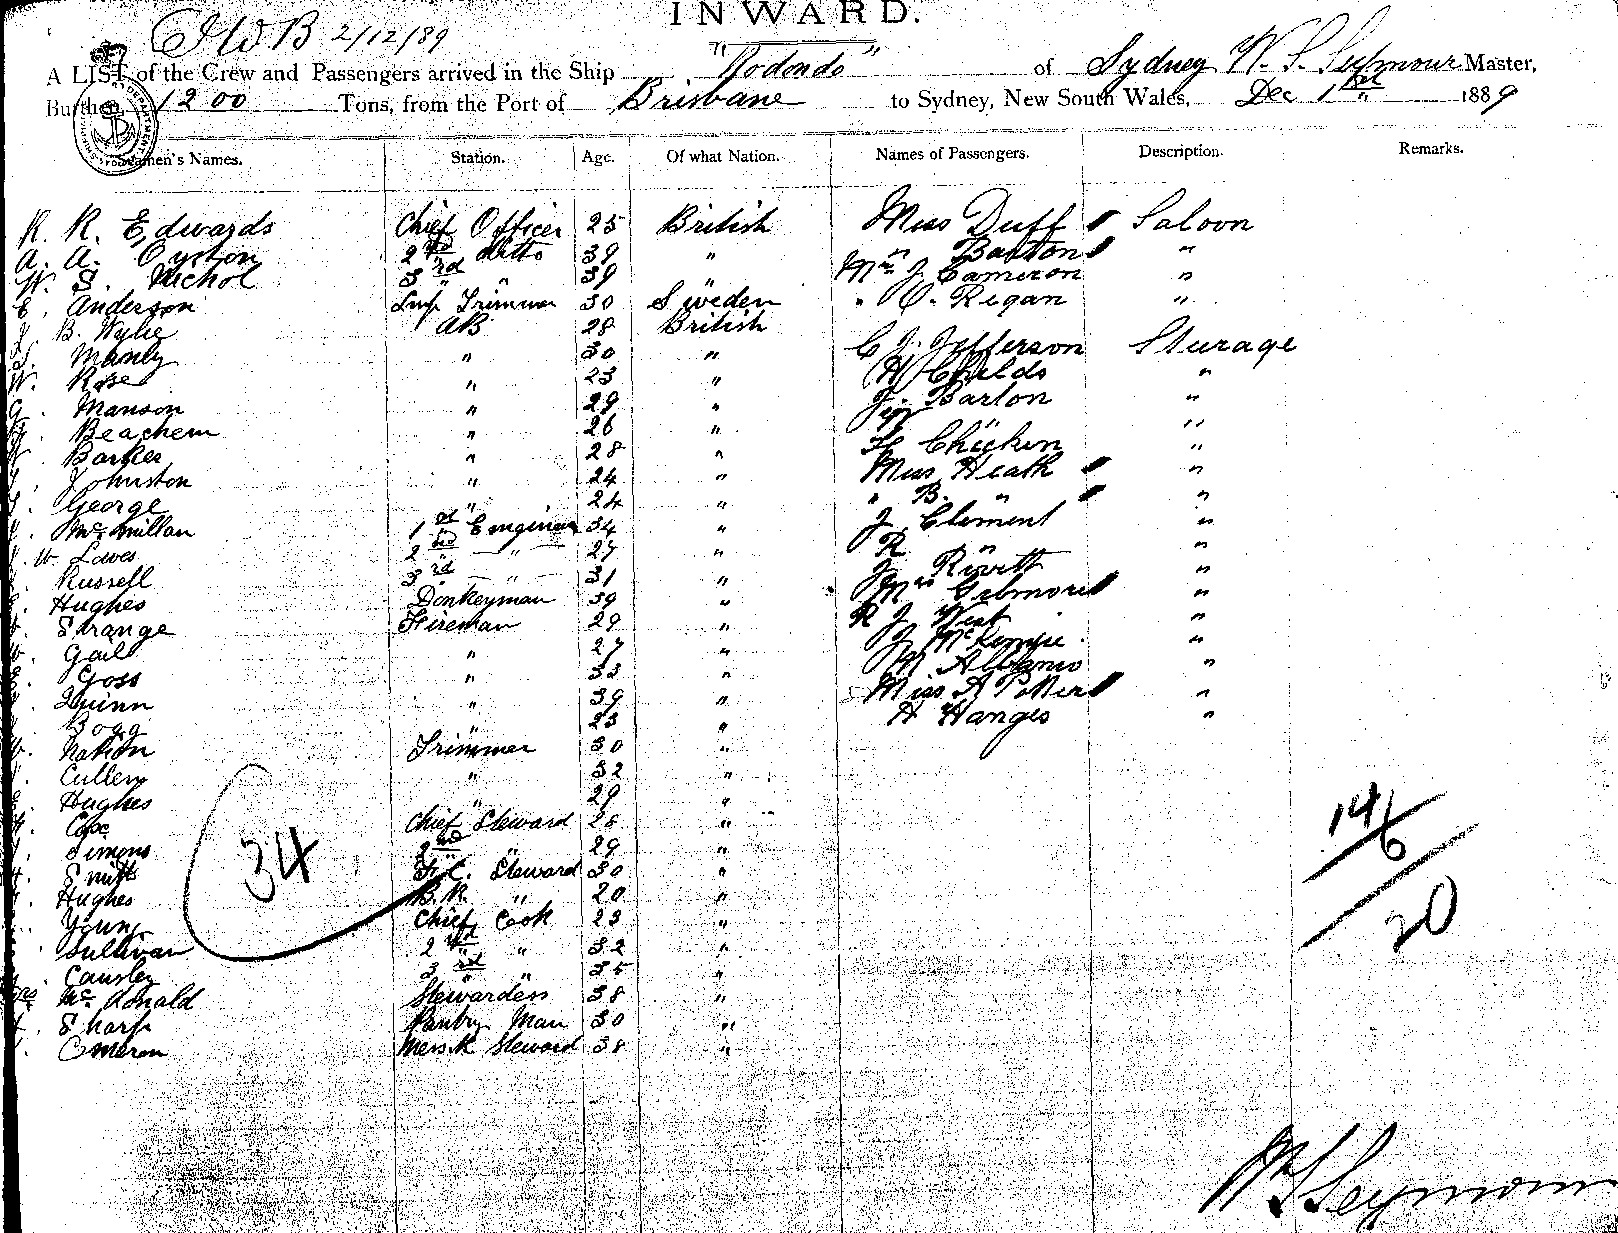 INWARD.
2/12/89
A LIST of the Crew and Passengers arrived in the Ship "Rodondo" of Sydney W. S. Seymour Master,
Burthen 1200 Tons, from the Port of Brisbane to Sydney, New South Wales, Dec 1st 1889
Seamen's Names. Station. Age. Of what Nation. Names of Passengers. Description. Remarks.
R. R. Edwards Chief Officer 25 British Miss Duff Saloon
A. A. Oyston 2nd ditto 39 " " Barton "
W. S. Nichol 3rd " 39 " Mr J Cameron "
E. Anderson Lmp Trimmer 30 Sweden " O. Regan "
B. Wylie AB 28 British
Manly " 30 " C J. Jefferson Sturage
W. Rose " 23 " H Childs "
G. Manson " 29 " J. Barton "
Beachem " 26 " " "
Barker " 28 " Chicken "
Johnston " 24 " Miss Heath "
George " 24 " " B. " "
McMillan 1st Engineer 34 " J. Clement "
W. Lowes 2nd " 27 " R " "
Russell 3rd " 31 " J Rivett "
Hughes Donkeyman 39 " Mrs Gilmour "
Strange Fireman 29 " R J West "
Gail " 27 " J McKenzie "
Goss " 33 " M Albanio "
Quinn " 39 " Miss A Potter "
Bogg " 23 " H Hanges "
Nation Trimmer 30 "
Cullen " 32 "
Hughes " 29 "
Cope Chief Steward 28 "
Simons 2nd " 29 "
Smith F.C. Steward 30 "
Hughes B.R. " 20 "
Young Chief Cook 23 "
Sullivan 2nd " 32 "
Causley 3rd " 35 "
McDonald Stewardess 38 "
Sharp Pantry Man 30 "
Cameron Mess.R Steward 38 "
34
14/6
20
W S Seymour